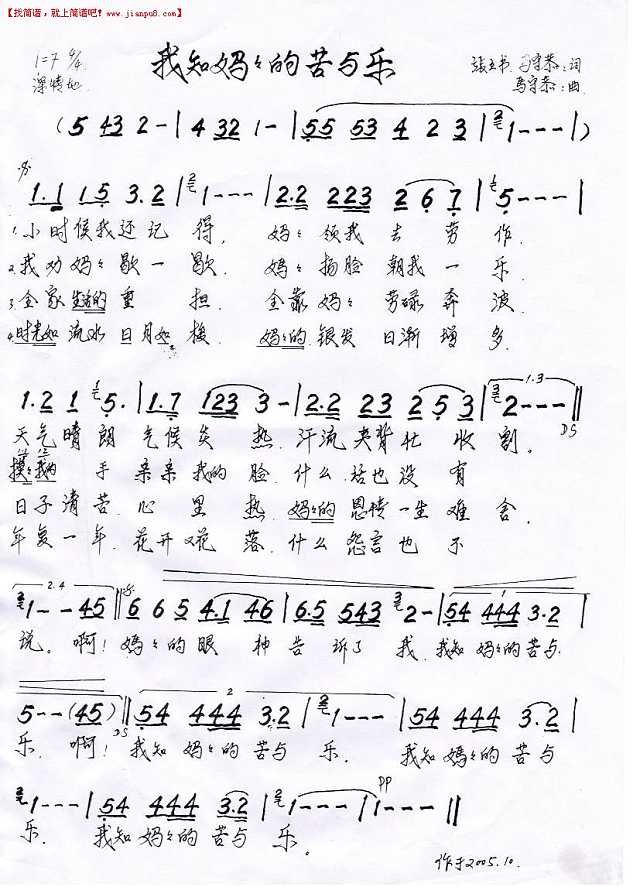 【找简谱，就上简谱吧！www.jianpu8.com】
我知妈々的苦与乐
1=F 4/4
深情地
马守恭：词
马守恭：曲
(5 43 2-|4 32 1-|55 53 4 2 3|1---|)
1.1 15 3.2|1---|2.2 223 2 6 7|5---|
1.小时候我还记得，妈々领我去劳作，
2.我劝妈々歇一歇，妈々扬脸朝我一乐
3.全家生活的重担，全靠妈々劳碌奔波
4.时光如流水日月如梭，妈々的银发日渐增多
1.2 1 5.|1.7 123 3-|2.2 23 2 5 3|2---‖
1.3
DS
天气晴朗气候炎热，汗流夹背忙收割。
手亲亲我的脸，什么话也没有
日子清苦心里热，妈々的恩情一生难舍，
年复一年，花开又花落，什么怨言也不
2.4
1--45‖6 6 5 4.1 46|6.5 543 2-|54 444 3.2|
说。啊！妈々的眼神告诉了我，我知妈々的苦与
5--(45)‖54 444 3.2|1---|54 444 3.2|
DS
乐，啊！我知妈々的苦与乐，我知妈々的苦与
PP
1---|54 444 3.2|1---|1---‖
乐，我知妈々的苦与乐。
作于2005.10.